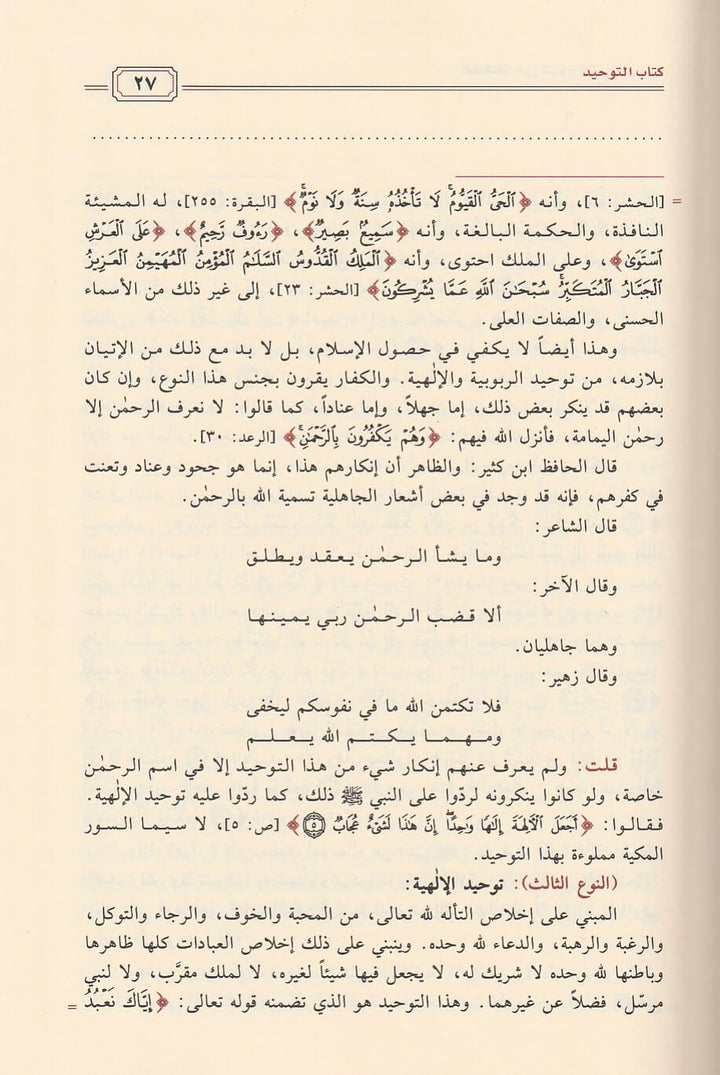 كتاب التوحيد
٢٧
= [الحشر: ٦]، وأنه ﴿ٱلْحَىُّ ٱلْقَيُّومُۚ لَا تَأْخُذُهُۥ سِنَةٌ وَلَا نَوْمٌۚ﴾ [البقرة: ٢٥٥]، له المشيئة
النافذة، والحكمة البالغة، وأنه ﴿سَمِيعٌۢ بَصِيرٌ﴾، ﴿رَءُوفٌ رَّحِيمٌ﴾، ﴿عَلَى ٱلْعَرْشِ
ٱسْتَوَىٰ﴾، وعلى الملك احتوى، وأنه ﴿ٱلْمَلِكُ ٱلْقُدُّوسُ ٱلسَّلَٰمُ ٱلْمُؤْمِنُ ٱلْمُهَيْمِنُ ٱلْعَزِيزُ
ٱلْجَبَّارُ ٱلْمُتَكَبِّرُۚ سُبْحَٰنَ ٱللَّهِ عَمَّا يُشْرِكُونَ﴾ [الحشر: ٢٣]، إلى غير ذلك من الأسماء
الحسنى، والصفات العلى.
وهذا أيضاً لا يكفي في حصول الإسلام، بل لا بد مع ذلك من الإتيان
بلازمه، من توحيد الربوبية والإلٰهية. والكفار يقرون بجنس هذا النوع، وإن كان
بعضهم قد ينكر بعض ذلك، إما جهلاً، وإما عناداً، كما قالوا: لا نعرف الرحمٰن إلا
رحمٰن اليمامة، فأنزل الله فيهم: ﴿وَهُمْ يَكْفُرُونَ بِٱلرَّحْمَٰنِۚ﴾ [الرعد: ٣٠].
قال الحافظ ابن كثير: والظاهر أن إنكارهم هذا، إنما هو جحود وعناد وتعنت
في كفرهم، فإنه قد وجد في بعض أشعار الجاهلية تسمية الله بالرحمٰن.
قال الشاعر:
وما يشأ الرحمٰن يعقد ويطلق
وقال الآخر:
ألا قضب الرحمٰن ربي يمينها
وهما جاهليان.
وقال زهير:
فلا تكتمن الله ما في نفوسكم ليخفى
ومهما يكتم الله يعلم
قلت: ولم يعرف عنهم إنكار شيء من هذا التوحيد إلا في اسم الرحمٰن
خاصة، ولو كانوا ينكرونه لردّوا على النبي ﷺ ذلك، كما ردّوا عليه توحيد الإلٰهية.
فقالوا: ﴿أَجَعَلَ ٱلْءَالِهَةَ إِلَٰهًا وَٰحِدًاۖ إِنَّ هَٰذَا لَشَىْءٌ عُجَابٌ ٥﴾ [ص: ٥]، لا سيما السور
المكية مملوءة بهذا التوحيد.
(النوع الثالث): توحيد الإلٰهية:
المبني على إخلاص التأله لله تعالى، من المحبة والخوف، والرجاء والتوكل،
والرغبة والرهبة، والدعاء لله وحده. وينبني على ذلك إخلاص العبادات كلها ظاهرها
وباطنها لله وحده لا شريك له، لا يجعل فيها شيئاً لغيره، لا لملك مقرَّب، ولا لنبي
مرسّل، فضلاً عن غيرهما. وهذا التوحيد هو الذي تضمنه قوله تعالى: ﴿إِيَّاكَ نَعْبُدُ =